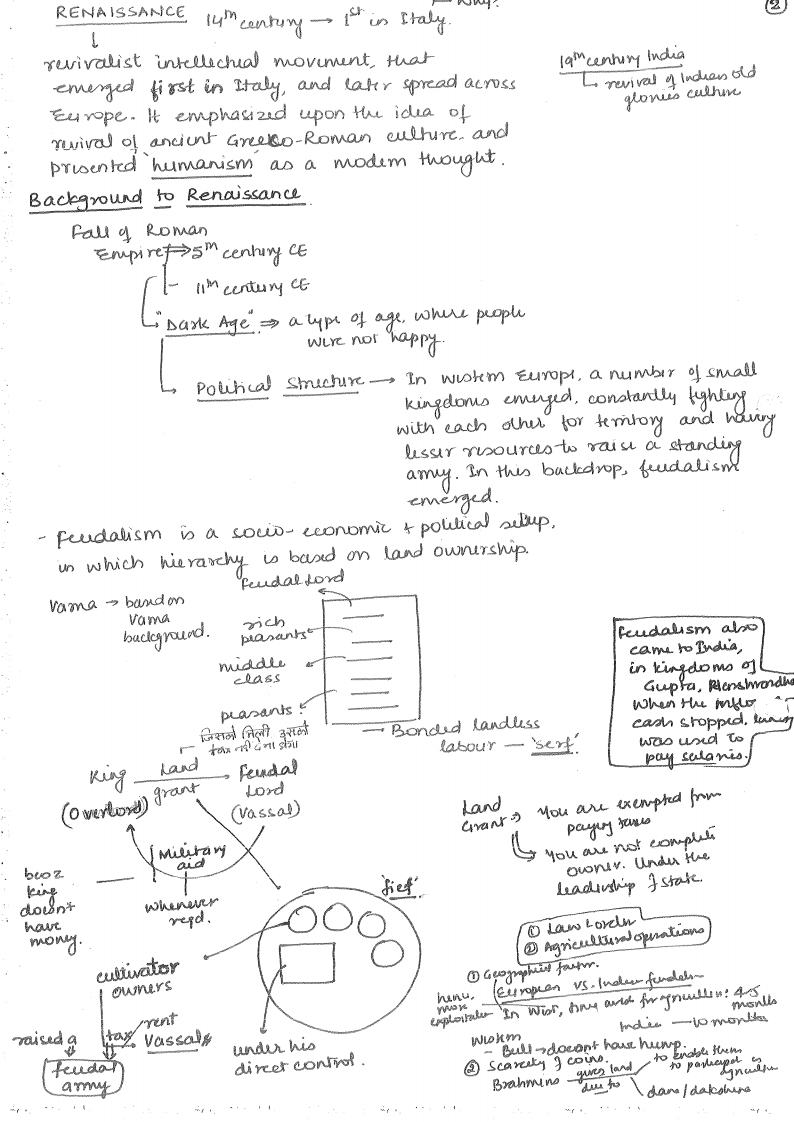 Why?
②
RENAISSANCE 14th century → 1st in Italy.
revivalist intellectual movement, that
emerged first in Italy, and later spread across
Europe. It emphasized upon the idea of
revival of ancient Greeko-Roman culture and
presented 'humanism' as a modern thought.
19th century India
revival of Indian old
glories culture
Background to Renaissance.
Fall of Roman
Empire ⇒ 5th century CE
11th century CE
"Dark Age" ⇒ a type of age, where people
were not happy.
Political Structure → In western Europe, a number of small
kingdoms emerged, constantly fighting
with each other for territory and having
lesser resources to raise a standing
army. In this backdrop, feudalism
emerged.
- Feudalism is a socio-economic + political setup,
in which hierarchy is based on land ownership.
Varna → based on
Varna
background.
feudal Lord
rich
peasants
middle
class
peasants
→ Bonded landless
labour — 'serf'.
Feudalism also
came to India,
in kingdoms of
Gupta,
when the
cash stopped,
was used to
pay salaries.
जिसको मिली उसको
नहीं देना होगा
King Land grant → Feudal
Lord
(Overlord) (Vassal)
Military
aid
whenever
reqd.
bcoz
king
doesn't
have
money.
Land
Grant → You are exempted from
paying taxes
You are not complete
owner. Under the
leadership of state.
'fief'
cultivator
owners
raised a
tax/rent
Vassals
feudal
army
under his
direct control.
① Law & order
② Agricultural operations
① Geographical factor.
European vs. Indian
hence,
more
In West, for agriculture: 4-5
months
India — 10 months
Western
- Bull → doesn't have hump.
② Scarcity of coins.
Brahmins gives land
due to
to enable them
to participate in
agriculture
dana/dakshina